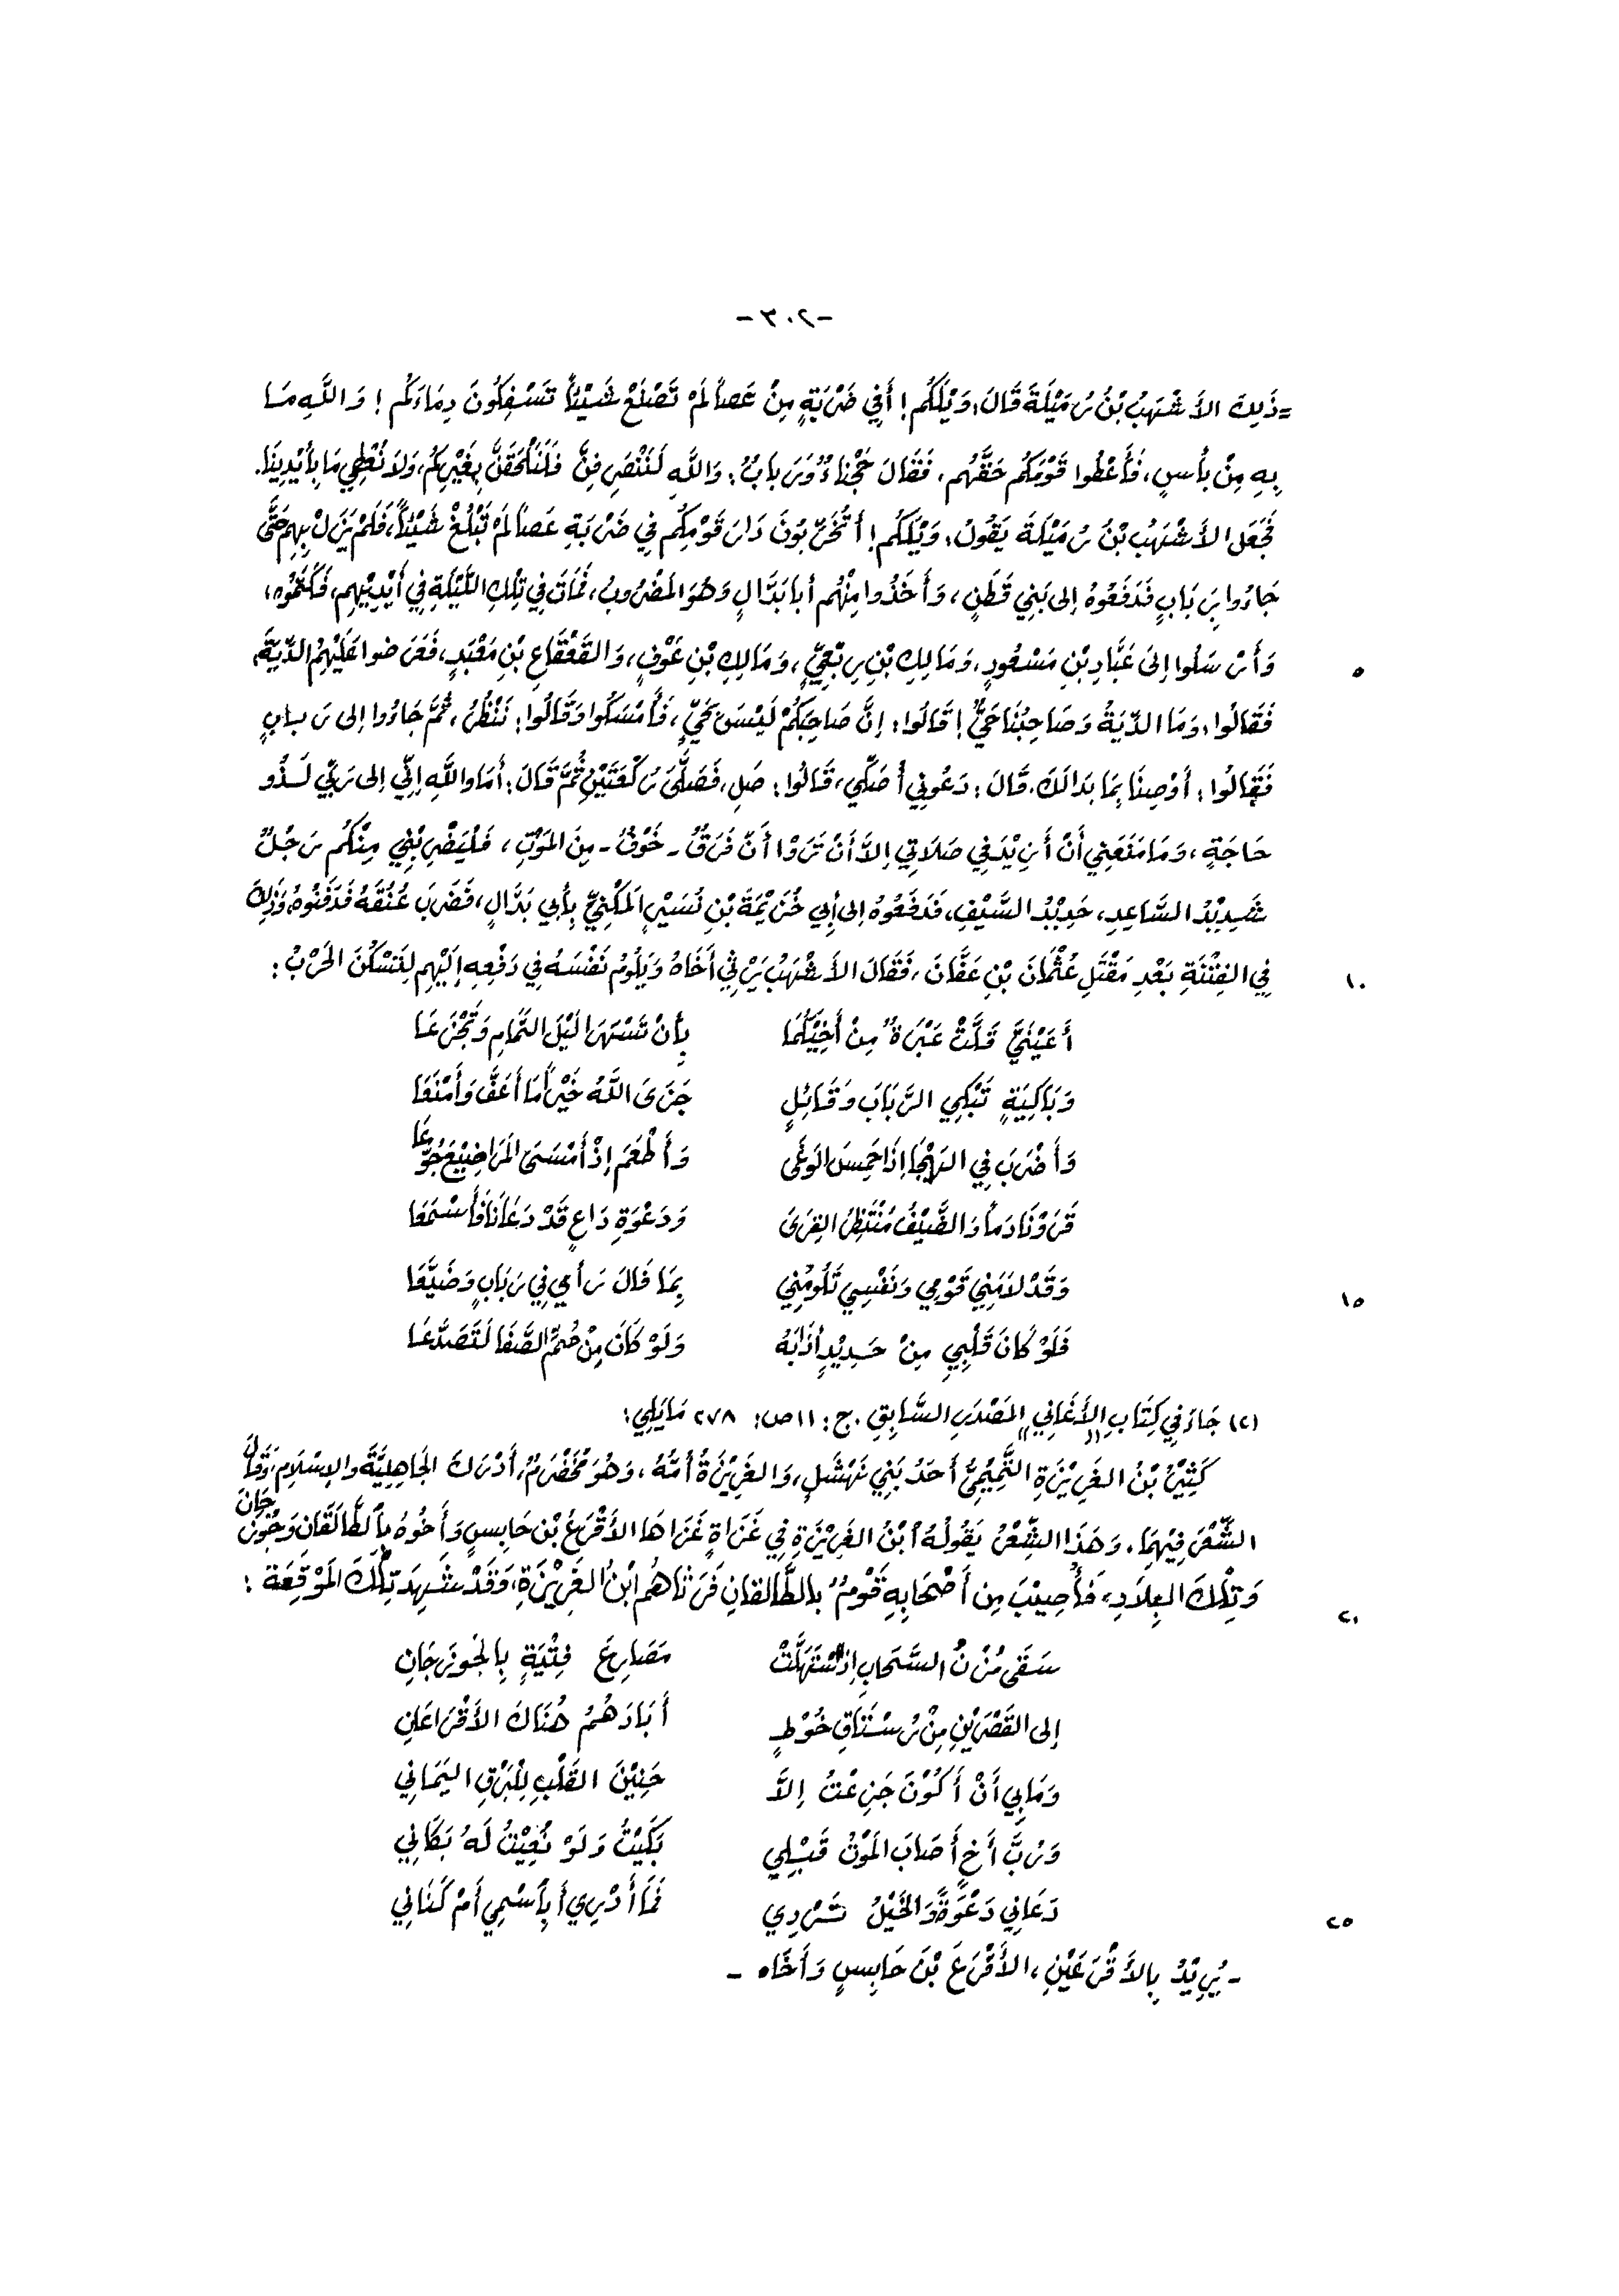 -٢٠٣-
= ذَلِكَ الأَشْهَبُ بْنُ رُمَيْلَةَ قَالَ: وَيْلَكُم! أَفِي ضَرْبَةٍ مِنْ عَصَاً لَمْ تَصْنَعْ شَيْئاً تَسْفِكُونَ دِمَاءَكُم! وَاللَّهِ مَا
بِهِ مِنْ بأْسٍ، فَأَعْطُوا قَوْمَكُم حَقَّهُم. فَقَالَ حَجْنَاءُ وَرَبابٌ: وَاللَّهِ لَنَنْصَرِفِنَّ فَلَنَلْحَقَنَّ بِغَيْرِكُم، وَلاَ نُعْطِي مَا بِأَيْدِينَا.
فَجَعَلَ الأَشْهَبُ بْنُ رُمَيْلَةَ يَقُولُ: وَيْلَكُم! أَتُخَرِّبُونَ دَارَ قَوْمِكُم فِي ضَرْبَةِ عَصَاً لَمْ تَبْلُغْ شَيْئاً، فَلَمْ يَزَلْ بِهِم حَتَّى
جَاءُوا بِرَبَابٍ فَدَفَعُوهُ إلى بَنِي قَطَنٍ، وَأَخَذُوا مِنْهُم أبا بَدَّالٍ وَهُوَ المَضْرُوبُ، فَمَاتَ فِي تِلْكِ اللَّيْلَةِ فِي أَيْدِيْهِم، فَكَتَمُوْه،
وَأَرْسَلُوا إلى عَبَّادِ بْنِ مَسْعُودٍ، وَمَالِكِ بْنِ رِبْعِيٍّ، وَمَالِكِ بْنِ عَوْفٍ، وَالقَعْقَاعِ بْنِ مَعْبَدٍ، فَعَرَضوا عَلَيْهِمُ الدِّيَةَ،
٥
فَقَالُوا: وَمَا الدِّيَةُ وَصَاحِبُنَا حَيٌّ! قَالُوا: إنَّ صَاحِبَكُمْ لَيْسَ بِحَيٍّ، فَأَمْسَكُوا وَقَالُوا: نَنْظُرُ، ثُمَّ جَاءُوا إلى رَبابٍ
فَقَالُوا: أَوْصِنَا بِمَا بَدَا لَكَ. قَالَ: دَعُونِي أُصَلِّي، قَالُوا: صَلِ، فَصَلَّىَ رَكْعَتَيْنِ ثُمَّ قَالَ: أمَا وَاللَّهِ إنِّي إلى رَبِّي لَذُو
حَاجَةٍ، وَمَا مَنَعَنِي أَنْ أَزِيْدَ فِي صَلاَتِي إلاَّ أَنْ تَرَوْا أَنَّ فَرَقٌ - خَوْفٌ - مِنَ المَوْتِ، فَلْيَضْرِبْنِي مِنْكُم رَجُلٌ
شَدِيْدُ السَّاعِدِ، حَدِيْدُ السَّيْفِ، فَدَفَعُوهُ إلى أبِي خُزَيْمَةَ بْنِ نُسَيْرٍ المَكْنِيِّ بِأَبِي بَدَّالٍ، فَضَرَبَ عُنُقَهُ فَدَفَنُوهُ وَذَلِكَ
فِي الفِتْنَةِ بَعْدِ مَقْتَلِ عُثْمَانَ بْنِ عَفَّانَ، فَقَالَ الأَشْهَبُ يَرْثِي أَخَاهُ وَيَلُومُ نَفْسَهُ فِي دَفْعِهِ إلَيْهِم لِتَسْكُنَ الحَرْبُ:
١٠
أَعَيْنَيَّ قَلَّتْ عَبْرَةٌ مِنْ أَخِيْكُمَا بِأَنْ تَسْهَرَا لَيْلَ التَّمَامِ وَتَجْزَعَا
وَبَاكِيَةٍ تَبْكِي الرَّبَابَ وَقَائِلٍ جَزَىَ اللَّهُ خَيْراً مَا أَعَفَّ وَأَمْنَعَا
وَأَضْرَبَ فِي الهَيْجَا إذَا حَمِسَ الوَغَى وَأَطْعَمَ إذْ أَمْسَىَ المَرَاضِيْعَ جُوَّعَا
قَرَوْنَا دَمَاً وَالضَّيْفُ مُنْتَظِرُ القِرَىَ وَدَعْوَةِ دَاعٍ قَدْ دَعَانَا فَأَسْمَعَا
وَقَدْ لاَمَنِي قَوْمِي وَنَفْسِي تَلُومُنِي بِمَا فَالَ رَأْيِي فِي رَبَابٍ وَضَيَّعَا
١٥
فَلَوْ كَانَ قَلْبِي مِنْ حَدِيْدٍ أَذَابَهُ وَلَوْ كَانَ مِنْ صُمِّ الصَّفَا لَتَصَدَّعَا
(٢) جَاءَ فِي كِتَابِ "الأَغَانِي" المَصْدَرِ السَّابِقِ. ج: ١١ ص: ٢٧٨ مَا يَلِي:
كَثِيْرُ بْنُ الغَرِيْزَةِ التَّمِيْمِيُّ أَحَدُ بَنِي نَهْشَلٍ، وَالغَرِيْزَةُ أُمُّهُ، وَهُوَ مُخَضْرَمٌ، أَدْرَكَ الجَاهِلِيَّةَ وَالإسْلاَمَ، وَقَالَ
الشِّعْرَ فِيْهِمَا. وَهَذَا الشِّعْرُ يَقُولُهُ ابْنُ الغَرِيْزَةِ فِي غَزَاةٍ غَزَاهَا الأَقْرَعُ بْنُ حَابِسٍ وَأَخُوهُ بِالطَّالَقَانِ وَجُوْزَجَانَ
وَتِلْكَ البِلاَدِ، فَأُصِيْبَ مِن أَصْحَابِهِ قَوْمٌ بالطَّالقانِ فَرَثَاهُم ابْنُ الغَرِيْزَةِ، وَقَدْ شَهِدَ تِلْكَ المَوْقِعَةَ:
٢٠
سَقَى مُزْنُ السَّحَابِ إذَا اسْتَهَلَّتْ مَصَارِعَ فِتْيَةٍ بِالجَوْزَجَانِ
إلى القَصْرَيْنِ مِنْ رُسْتَاقِ خُوْطٍ أَبَادَهُمُ هُنَاكَ الأَقْرَعَانِ
وَمَا بِي أَنْ أَكُوْنَ جَزِعْتُ إلاَّ حَنِيْنَ القَلْبِ لِلْبَرْقِ اليَمَانِي
وَرُبَّ أَخٍ أَصَابَ المَوْتُ قَبْلِي بَكَيْتُ وَلَوْ نُعِيْتُ لَهُ بَكَانِي
دَعَانِي دَعْوَةً وَالخَيْلُ تَرْدِي فَمَا أَدْرِي أَبِاسْمِي أَمْ كَنَانِي
٢٥
- يُرِيْدُ بِالأَقْرَعَيْنِ، الأَقْرَعَ بْنَ حَابِسٍ وَأَخَاه -